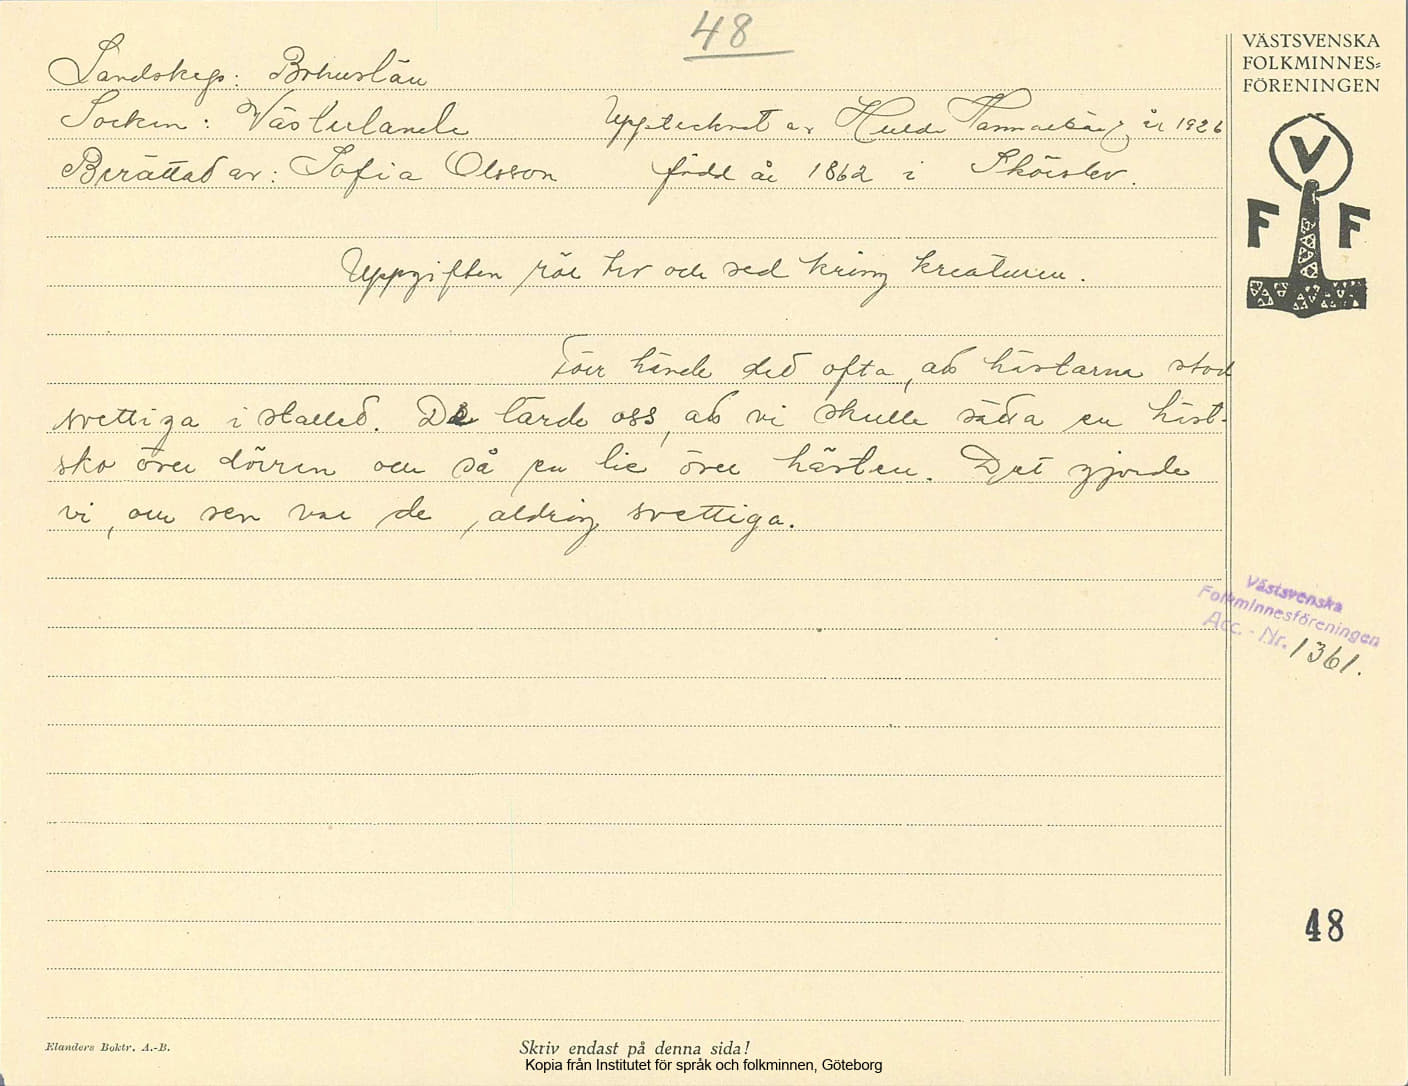 48
VÄSTSVENSKA
FOLKMINNES=
FÖRENINGEN
V
F F
Landskap: Bohuslän
Socken: Västerlanda Upptecknat av Hulda år 1926
Berättad av: Sofia Olsson född år 1862 i
Uppgiften rör tro och sed kring kreaturen.
Förr hände det ofta, att hästarna stod
svettiga i stallet. De lärde oss, att vi skulle sätta en häst-
sko över dörren och så en lie över hästen. Det gjorde
vi, och sen var de aldrig svettiga.
Västsvenska
Folkminnesföreningen
Acc. - Nr. 1361.
48
Elanders Boktr. A.-B.
Skriv endast på denna sida!
Kopia från Institutet för språk och folkminnen, Göteborg